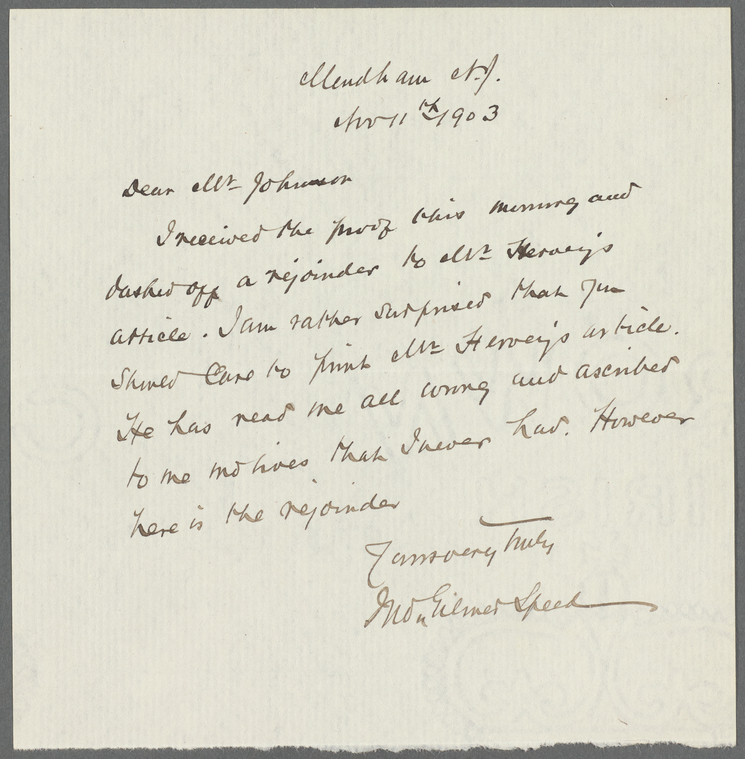 Mendham N.J.
Nov 11th 1903
Dear Mr Johnson
I received the proof this morning and
dashed off a rejoinder to Mr Hervey's
article. I am rather surprised that you
should care to print Mr Hervey's article.
He has read me all wrong and ascribed
to me motives that I never had. However
here is the rejoinder
Yours very truly
Jno Gilmer Speed